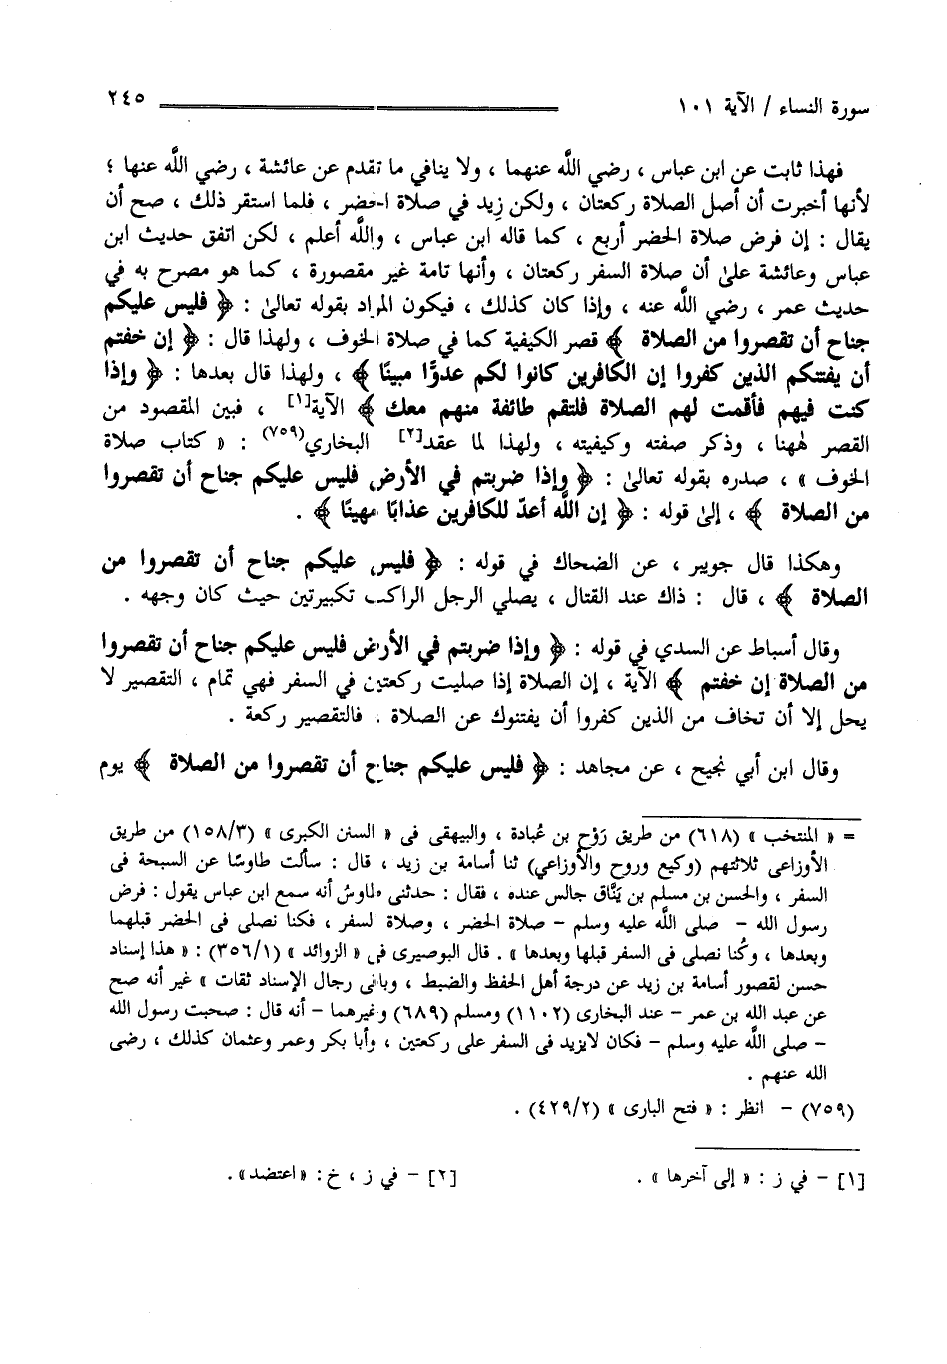 سورة النساء / الآية ١٠١
٢٤٥
فهذا ثابت عن ابن عباس ، رضي اللَّه عنهما ، ولا ينافي ما تقدم عن عائشة ، رضي اللَّه عنها ؛
لأنها أخبرت أن أصل الصلاة ركعتان ، ولكن زيد في صلاة الحضر ، فلما استقر ذلك ، صح أن
يقال : إن فرض صلاة الحضر أربع ، كما قاله ابن عباس ، واللَّه أعلم ، لكن اتفق حديث ابن
عباس وعائشة على أن صلاة السفر ركعتان ، وأنها تامة غير مقصورة ، كما هو مصرح به في
حديث عمر ، رضي اللَّه عنه ، وإذا كان كذلك ، فيكون المراد بقوله تعالى : ﴿ فليس عليكم
جناح أن تقصروا من الصلاة ﴾ قصر الكيفية كما في صلاة الخوف ، ولهذا قال : ﴿ إن خفتم
أن يفتنكم الذين كفروا إن الكافرين كانوا لكم عدوًّا مبينًا ﴾ ، ولهذا قال بعدها : ﴿ وإذا
كنت فيهم فأقمت لهم الصلاة فلتقم طائفة منهم معك ﴾ الآية[١] ، فبين المقصود من
القصر هٰهنا ، وذكر صفته وكيفيته ، ولهذا لما عقد[٢] البخاري(٧٥٩) : « كتاب صلاة
الخوف » ، صدره بقوله تعالى : ﴿ وإذا ضربتم في الأرض فليس عليكم جناح أن تقصروا
من الصلاة ﴾ ، إلى قوله : ﴿ إن اللَّه أعدّ للكافرين عذابًا مهينًا ﴾ .
وهكذا قال جويبر ، عن الضحاك في قوله : ﴿ فليس عليكم جناح أن تقصروا من
الصلاة ﴾ ، قال : ذاك عند القتال ، يصلي الرجل الراكب تكبيرتين حيث كان وجهه .
وقال أسباط عن السدي في قوله : ﴿ وإذا ضربتم في الأرض فليس عليكم جناح أن تقصروا
من الصلاة إن خفتم ﴾ الآية ، إن الصلاة إذا صليت ركعتين في السفر فهي تمام ، التقصير لا
يحل إلا أن تخاف من الذين كفروا أن يفتنوك عن الصلاة . فالتقصير ركعة .
وقال ابن أبي نجيح ، عن مجاهد : ﴿ فليس عليكم جناح أن تقصروا من الصلاة ﴾ يوم
= « المنتخب » (٦١٨) من طريق رَوْح بن عُبادة ، والبيهقى فى « السنن الكبرى » (١٥٨/٣) من طريق
الأوزاعى ثلاثتهم (وكيع وروح والأوزاعي) ثنا أسامة بن زيد ، قال : سألت طاوسًا عن السبحة فى
السفر ، والحسن بن مسلم بن يَنَّاق جالس عنده ، فقال : حدثنى طاوسٌ أنه سمع ابن عباس يقول : فرض
رسول الله - صلى اللَّه عليه وسلم - صلاة الحضر ، وصلاة لسفر ، فكنا نصلى فى الحضر قبلهما
وبعدها ، وكُنا نصلى فى السفر قبلها وبعدها » . قال البوصيرى فى « الزوائد » (٣٥٦/١) : « هذا إسناد
حسن لقصور أسامة بن زيد عن درجة أهل الحفظ والضبط ، وباقى رجال الإسناد ثقات » غير أنه صح
عن عبد الله بن عمر - عند البخارى (١١٠٢) ومسلم (٦٨٩) وغيرهما - أنه قال : صحبت رسول الله
- صلى اللَّه عليه وسلم - فكان لايزيد فى السفر على ركعتين ، وأبا بكر وعمر وعثمان كذلك ، رضى
الله عنهم .
(٧٥٩) - انظر : « فتح البارى » (٤٢٩/٢) .
[١] - في ز : « إلى آخرها » .
[٢] - في ز ، خ : « اعتضد» .